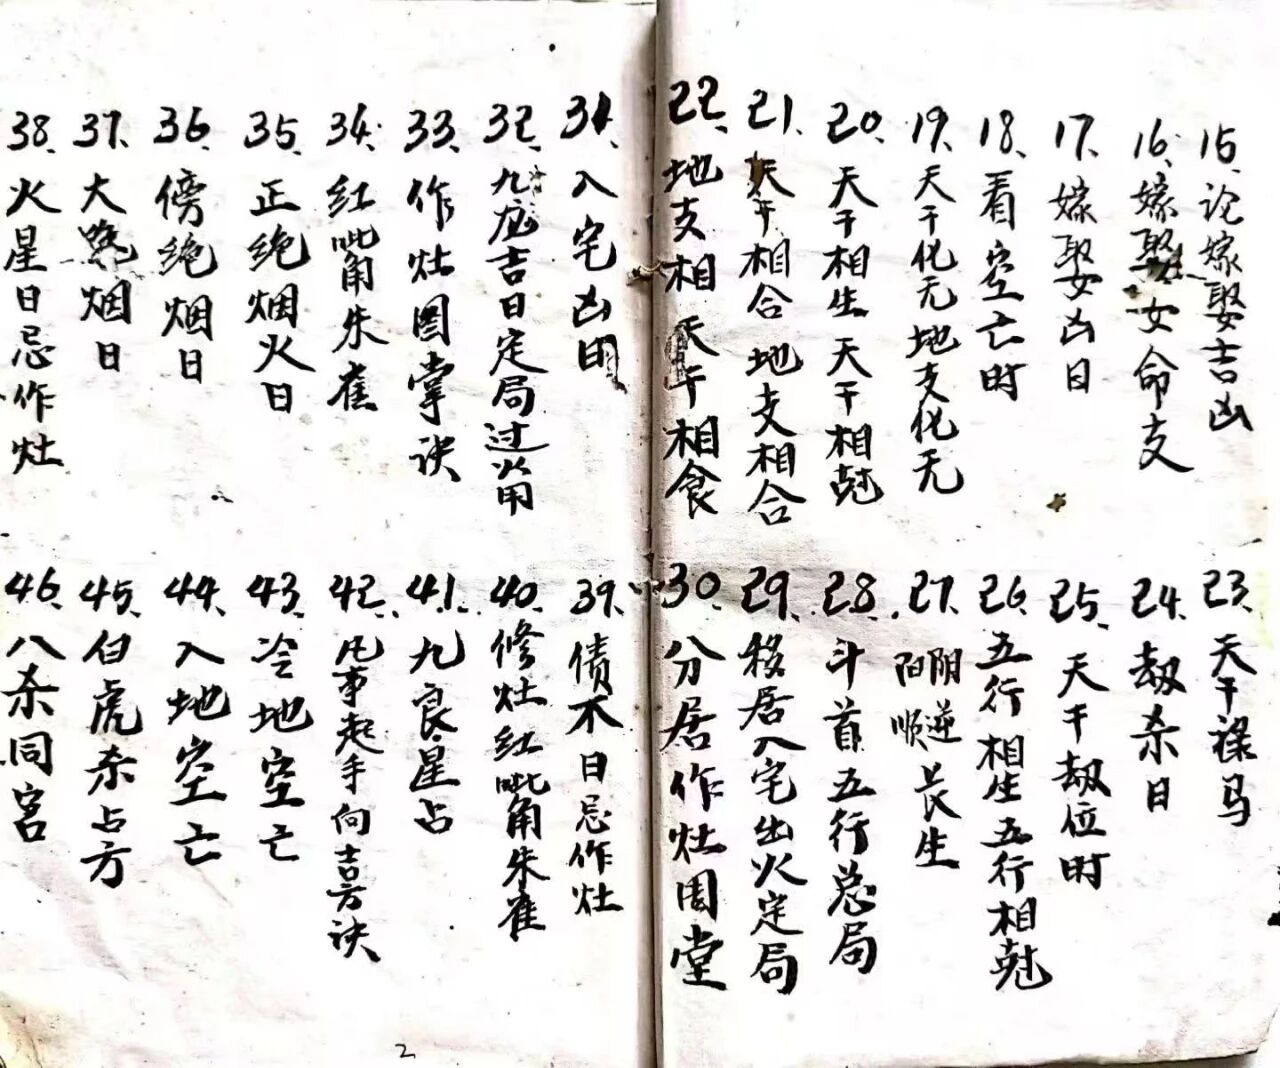 15、论嫁娶吉凶
16、嫁娶女命支
17、嫁娶凶日
18、看空亡时
19、天干化无地支化无
20、天干相生天干相尅
21、天干相合地支相合
22、地支相 天干相食
23、天干禄马
24、劫杀日
25、天干劫位时
26、五行相生五行相尅
27、阴逆阳顺长生
28、斗首五行总局
29、移居入宅出火定局
30、分居作灶周堂
31、入宅凶日
32、九龙吉日定局过
33、作灶图掌诀
34、红毗角朱雀
35、正绝烟火日
36、傍绝烟日
37、大 烟日
38、火星日忌作灶
39、债不日忌作灶
40、修灶红毗角朱雀
41、九良星占
42、凡事起手向吉方诀
43、冷地空亡
44、入地空亡
45、白虎杀占方
46、八杀同宫
2